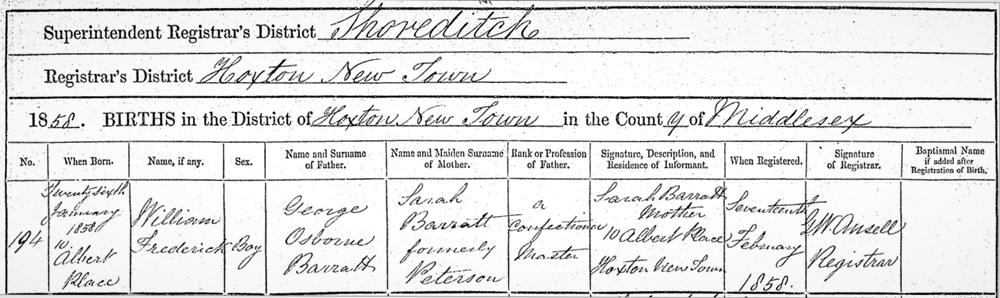 Superintendent Registrar's District Shoreditch
Registrar's District Hoxton New Town
1858. BIRTHS in the District of Hoxton New Town in the County of Middlesex
No.
When Born.
Name, if any.
Sex.
Name and Surname
of Father.
Name and Maiden Surname
of Mother.
Rank or Profession
of Father.
Signature, Description, and
Residence of Informant.
When Registered.
Signature
of Registrar.
Baptismal Name
if added after
Registration of Birth.
194
Twenty sixth
January
1858
10
Albert
Place
William
Frederick
Boy
George
Osborne
Barratt
Sarah
Barratt
formerly
Peterson
a
Confectioner
Master
Sarah Barratt
Mother
10 Albert Place
Hoxton New Town
Seventeenth
February
1858.
G.W. Ansell
Registrar